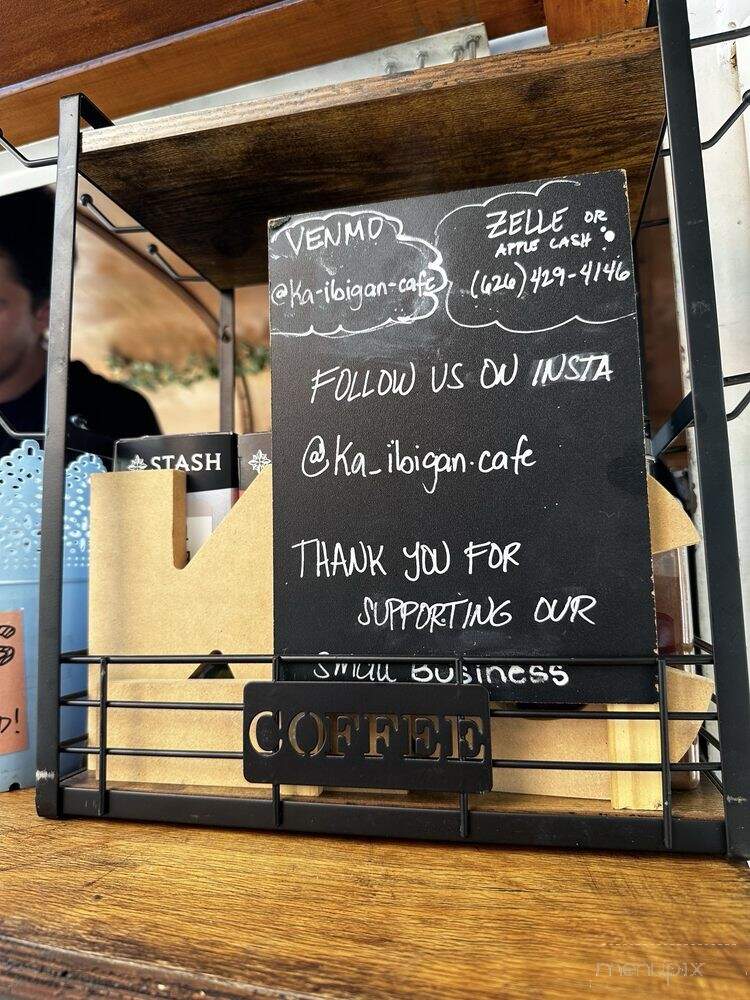 VENMO
@Ka-ibigan-cafe
ZELLE OR
APPLE CASH :
(626) 429-4146
FOLLOW US ON INSTA
@Ka_ibigan.cafe
THANK YOU FOR
SUPPORTING OUR
Small Business
STASH
COFFEE
menupix